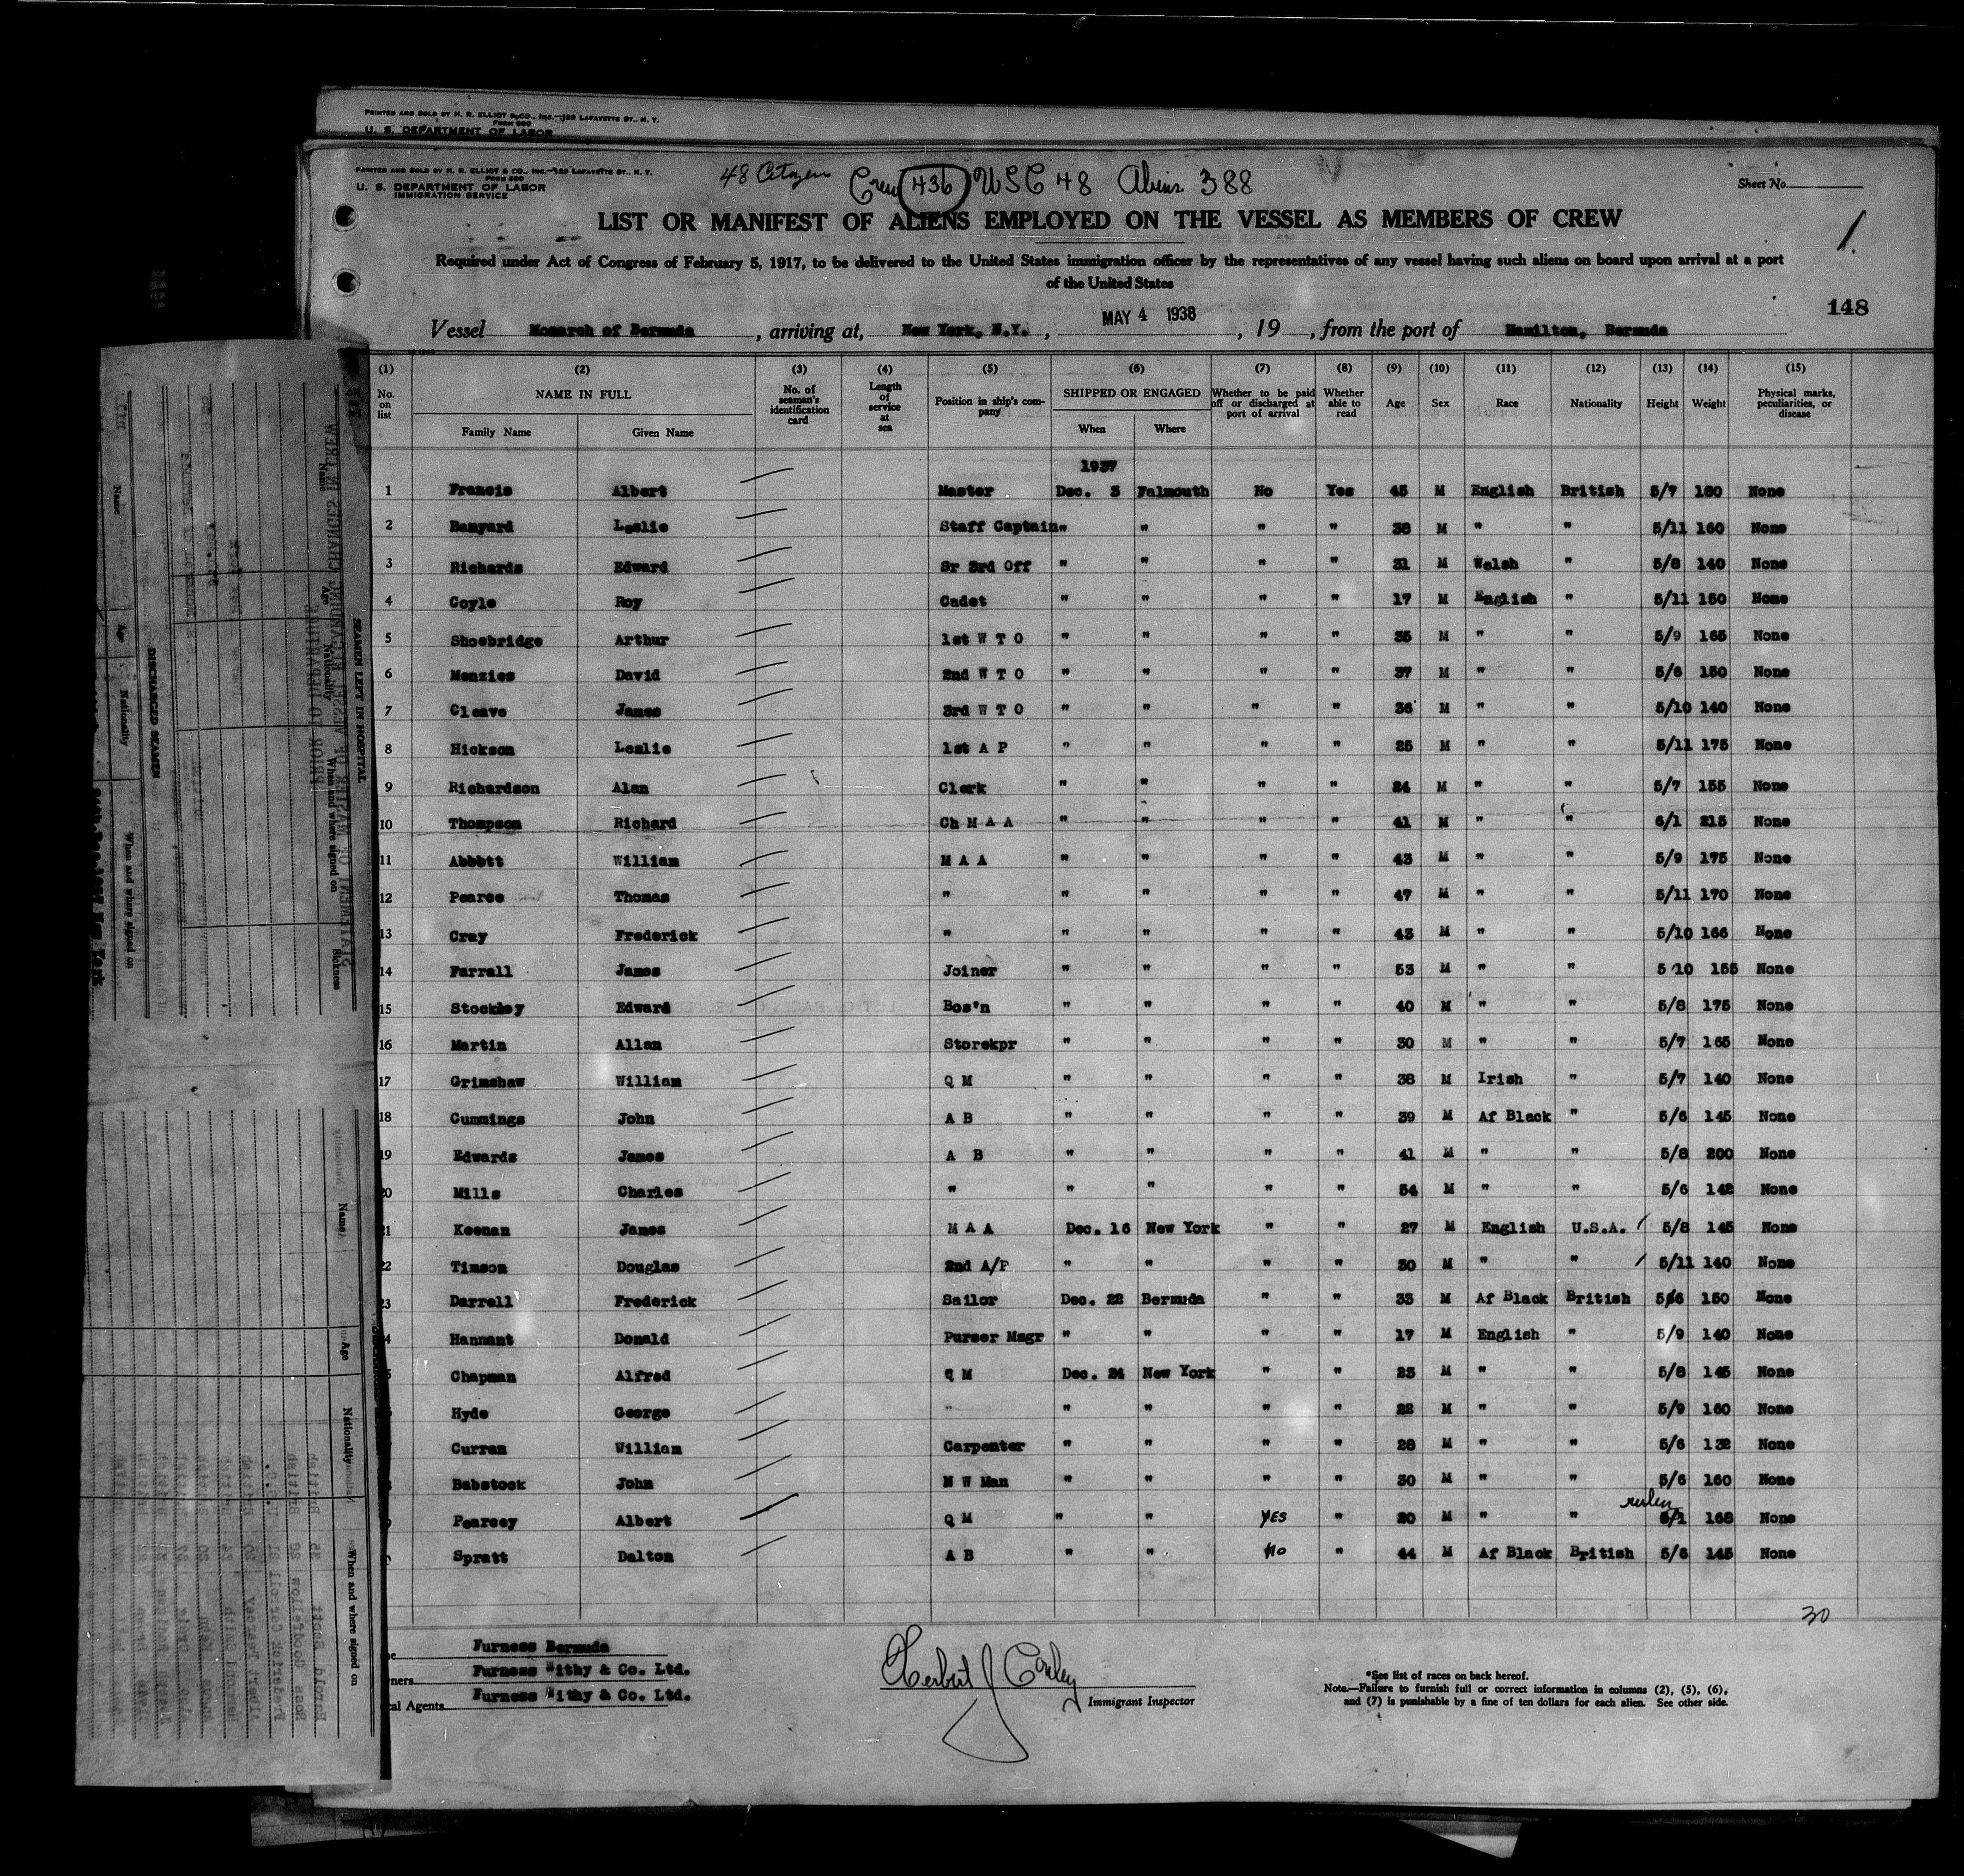 PRINTED AND SOLD BY H. R. ELLIOT & CO., INC.—129 LAFAYETTE ST., N. Y.
FORM 680
U. S. DEPARTMENT OF LABOR
PRINTED AND SOLD BY H. R. ELLIOT & CO., INC.—129 LAFAYETTE ST., N. Y.
FORM 680
U. S. DEPARTMENT OF LABOR
IMMIGRATION SERVICE
48 Citizen Crew 436 USC 48 Aliens 388
Sheet No.
1.
LIST OR MANIFEST OF ALIENS EMPLOYED ON THE VESSEL AS MEMBERS OF CREW
Required under Act of Congress of February 5, 1917, to be delivered to the United States immigration officer by the representatives of any vessel having such aliens on board upon arrival at a port
of the United States
148
Vessel Monarch of Bermuda, arriving at, New York, N.Y., MAY 4 1938, 19 , from the port of Hamilton, Bermuda
(1) (2) (3) (4) (5) (6) (7) (8) (9) (10) (11) (12) (13) (14) (15)
No. on list NAME IN FULL Family Name Given Name No. of seaman's identification card Length of service at sea Position in ship's company SHIPPED OR ENGAGED When Where Whether to be paid off or discharged at port of arrival Whether able to read Age Sex Race Nationality Height Weight Physical marks, peculiarities, or disease
1937
1 Francis Albert Master Dec. 3 Falmouth No Yes 45 M English British 5/7 180 None
2 Banyard Leslie Staff Captain " " " " 38 M " " 5/11 160 None
3 Richards Edward Sr 3rd Off " " " " 31 M Welsh " 5/8 140 None
4 Coyle Roy Cadet " " " " 17 M English " 5/11 150 None
5 Shoebridge Arthur 1st W T O " " " " 35 M " " 5/9 165 None
6 Menzies David 2nd W T O " " " " 37 M " " 5/6 150 None
7 Cleave James 3rd W T O " " " " 36 M " " 5/10 140 None
8 Hickson Leslie 1st A P " " " " 25 M " " 5/11 175 None
9 Richardson Alan Clerk " " " " 24 M " " 5/7 155 None
10 Thompson Richard Ch M A A " " " " 41 M " " 6/1 215 None
11 Abbott William M A A " " " " 43 M " " 5/9 175 None
12 Pearce Thomas " " " " " 47 M " " 5/11 170 None
13 Cray Frederick " " " " " 43 M " " 5/10 166 None
14 Farrall James Joiner " " " " 53 M " " 5 10 155 None
15 Stockley Edward Bos'n " " " " 40 M " " 5/8 175 None
16 Martin Allan Storekpr " " " " 30 M " " 5/7 165 None
17 Grimshaw William Q M " " " " 38 M Irish " 5/7 140 None
18 Cummings John A B " " " " 39 M Af Black " 5/6 145 None
19 Edwards James A B " " " " 41 M " " 5/8 200 None
20 Mills Charles " " " " " 54 M " " 5/6 142 None
21 Keenan James M A A Dec. 16 New York " " 27 M English U.S.A. 5/8 145 None
22 Timson Douglas 2nd A/P " " " " 30 M " " 5/11 140 None
23 Darrell Frederick Sailor Dec. 22 Bermuda " " 33 M Af Black British 5/6 150 None
4 Hannant Donald Purser Msgr " " " " 17 M English " 5/9 140 None
5 Chapman Alfred Q M Dec. 24 New York " " 23 M " " 5/8 145 None
Hyde George " " " " " 22 M " " 5/9 160 None
Curran William Carpenter " " " " 28 M " " 5/6 132 None
Babstock John N W Man " " " " 30 M " " 5/6 160 None
Pearcey Albert Q M " " YES " 20 M " " 168 None
Spratt Dalton A B " " No " 44 M Af Black British 5/6 145 None
30
Furness Bermuda
Furness Withy & Co. Ltd.
Furness Withy & Co. Ltd.
Agents
Herbert J Conley
Immigrant Inspector
*See list of races on back hereof.
Note.—Failure to furnish full or correct information in columns (2), (5), (6),
and (7) is punishable by a fine of ten dollars for each alien. See other side.
SEAMEN LEFT IN HOSPITAL
Name Age Nationality When and where signed on Sickness
DISCHARGED SEAMEN
Name Age Nationality When and where signed on
STATEMENT OF MASTER OF VESSEL REGARDING CHANGES IN CREW
PRIOR TO DEPARTURE
Name Age Nationality When and where signed on